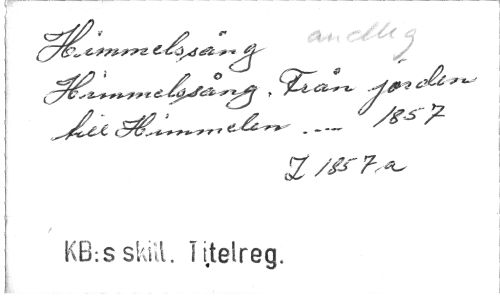 Himmelssång
andlig
Himmelssång. Från jorden
till Himmelen .... 1857
I 1857 a
KB:s skill. Titelreg.